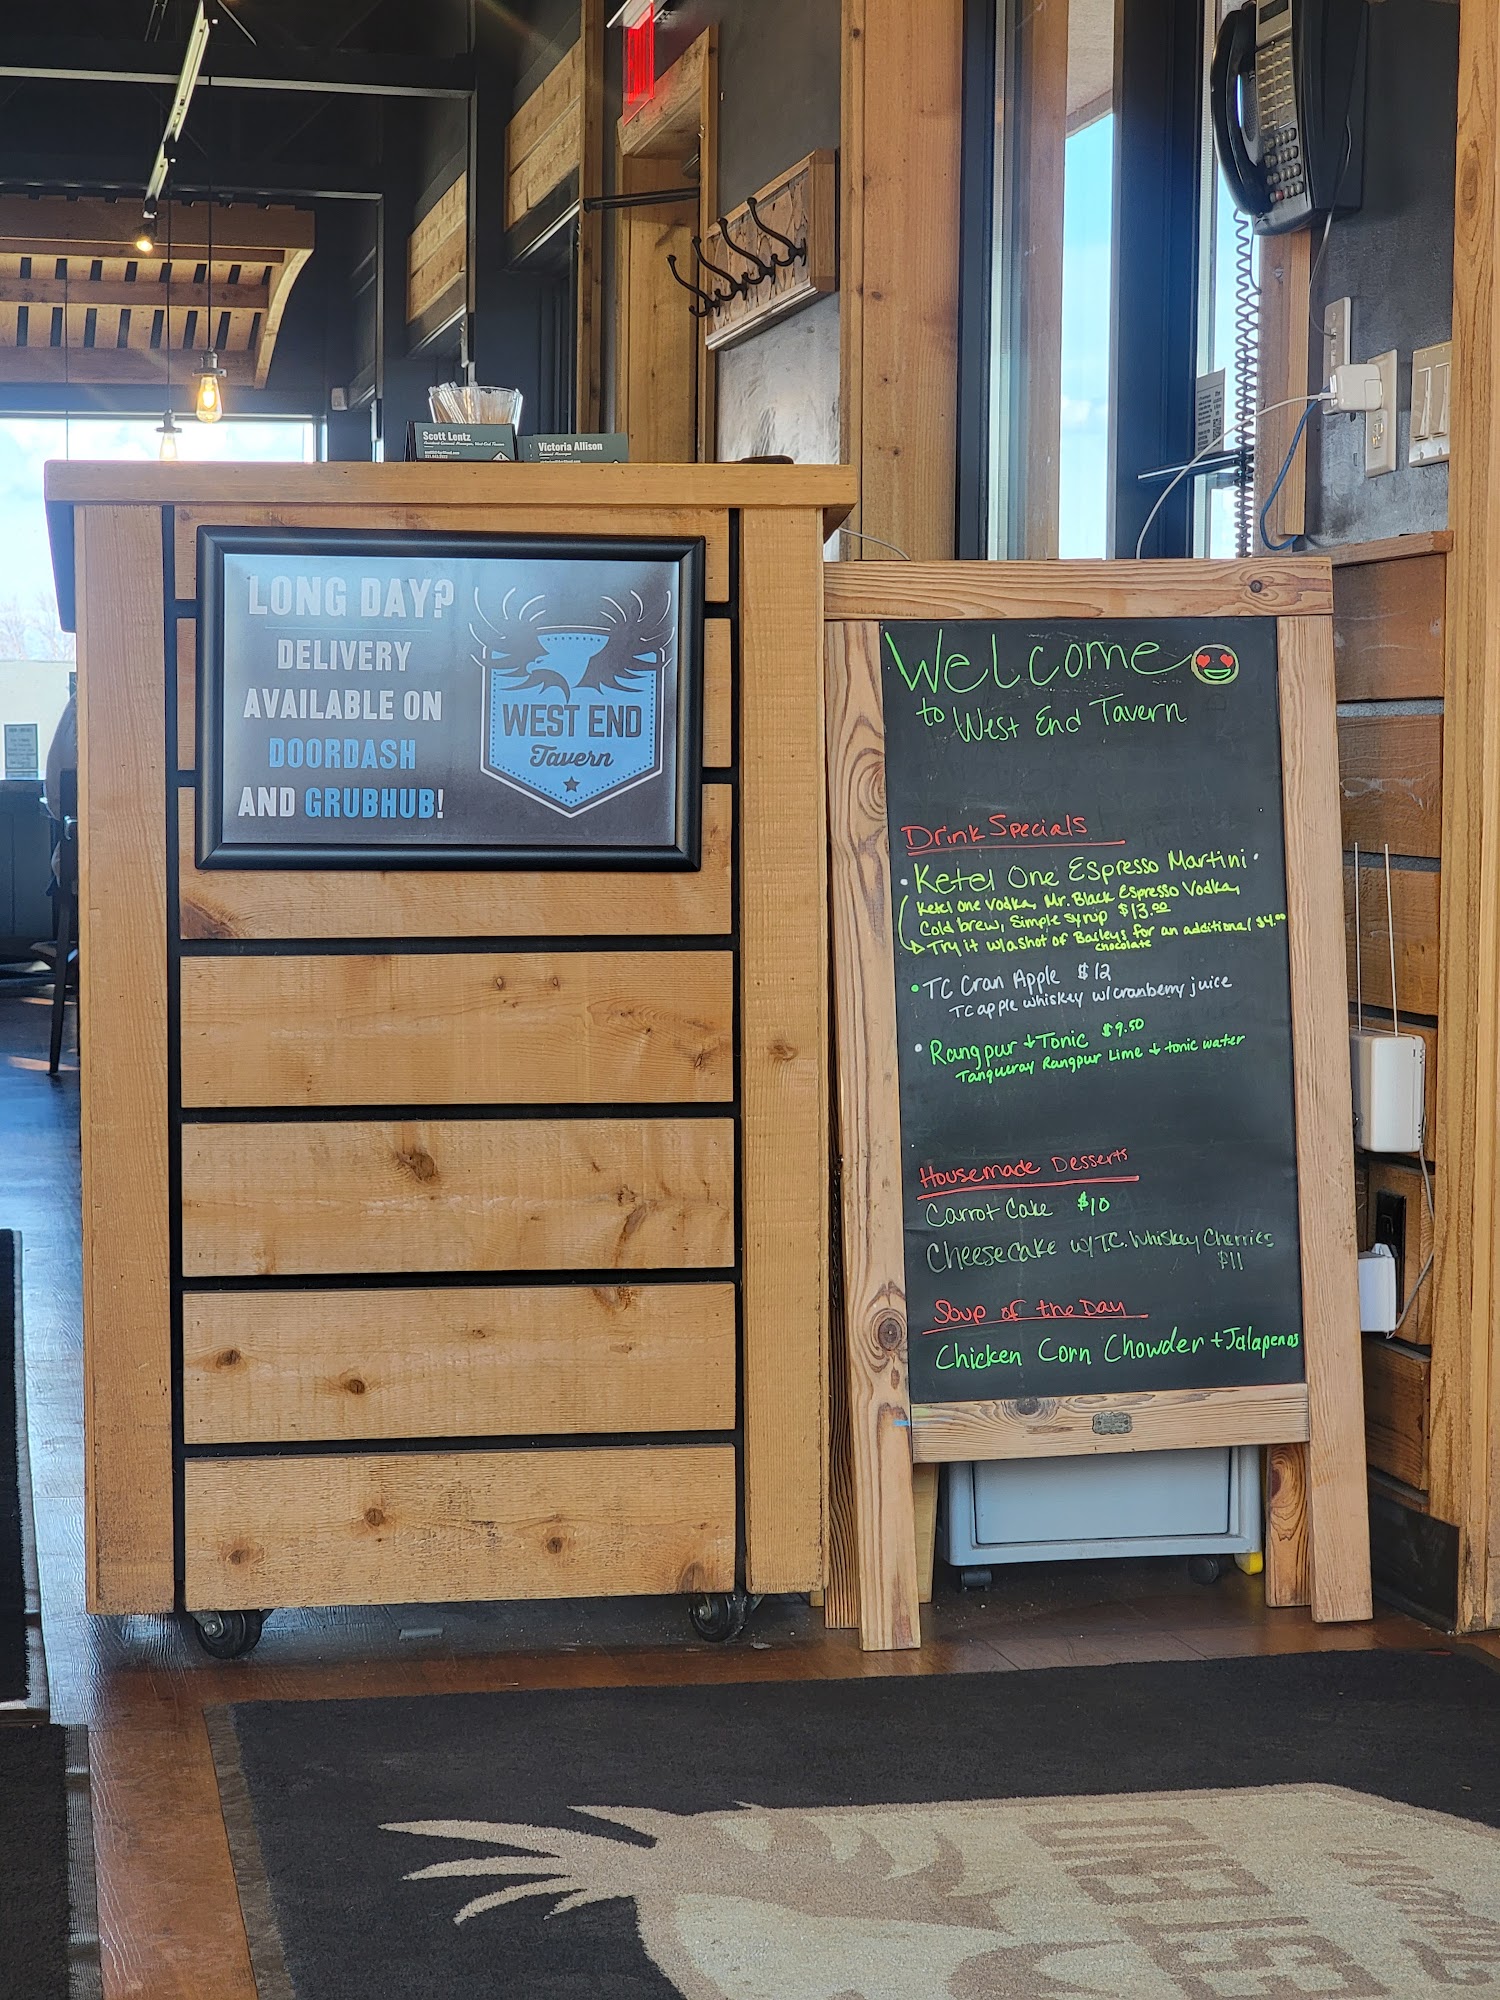 Scott Lentz
Victoria Allison
General Manager
LONG DAY?
DELIVERY
AVAILABLE ON
DOORDASH
AND GRUBHUB!
WEST END
Tavern
Welcome
to West End Tavern
Drink Specials
• Ketel One Espresso Martini •
Ketel One Vodka, Mr. Black Espresso Vodka,
Cold brew, Simple syrup $13.00
Try it w/ a shot of Baileys for an additional $4.00
chocolate
• TC Cran Apple $12
TC apple whiskey w/ cranberry juice
• Rangpur + Tonic $9.50
Tanqueray Rangpur Lime + tonic water
Housemade Desserts
Carrot Cake $10
Cheesecake w/ T.C. Whiskey Cherries
$11
Soup of the Day
Chicken Corn Chowder + Jalapenos
WEST END
Tavern